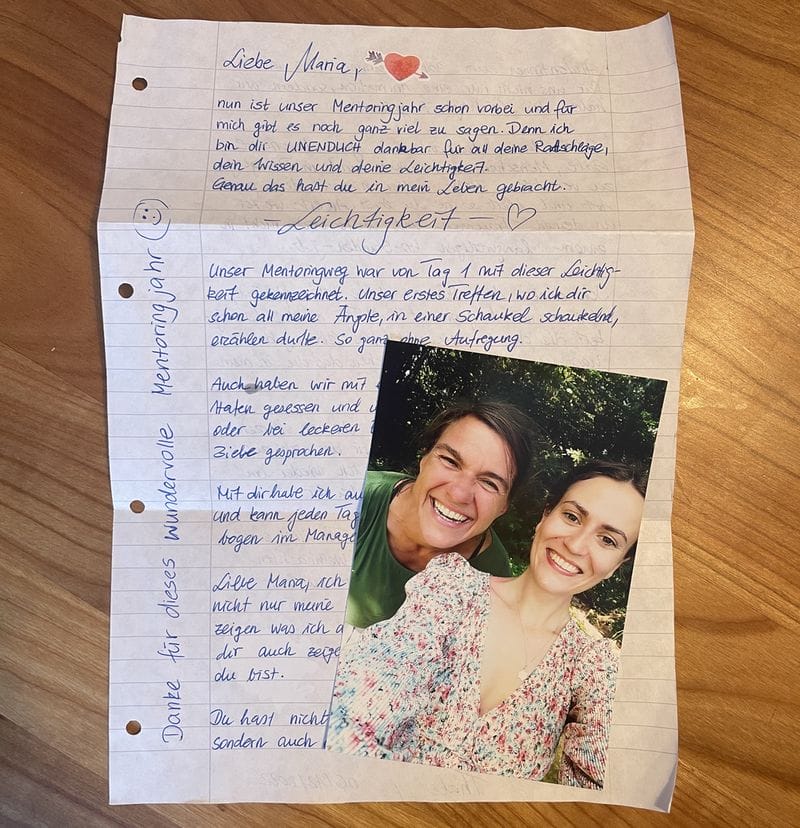 Liebe Maria,
nun ist unser Mentoringjahr schon vorbei und für
mich gibt es noch ganz viel zu sagen. Denn ich
bin dir UNENDLICH dankbar für all deine Ratschläge,
dein Wissen und deine Leichtigkeit.
Genau das hast du in mein Leben gebracht.
- Leichtigkeit -
Unser Mentoringweg war von Tag 1 mit dieser Leichtig-
keit gekennzeichnet. Unser erstes Treffen, wo ich dir
schon all meine Ängste, in einer Schaukel schaukelnd,
erzählen durfte. So ganz ohne Aufregung.
Auch haben wir mit
Hafen gesessen und
oder bei leckeren
Ziele gesprochen.
Mit dir habe ich au
und kann jeden Tag
bogen im Manage
Liebe Maria, ich
nicht nur meine
zeigen was ich a
dir auch zeige
du bist.
Du hast nicht
sondern auch
Danke für dieses wundervolle Mentoringjahr